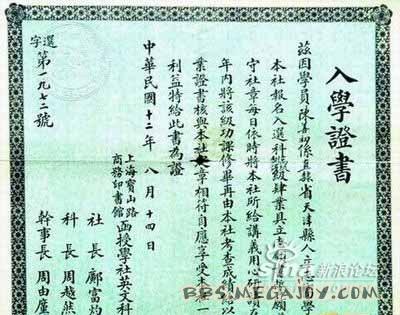 入學證書
茲因學員陳善初係直隸省天津縣人
本社報名入選科 級肄業具立
守社章每日依時將本社所給講義用心
年內將該級功課修畢再由本社考查成績
業證書核與本社 章相符自應享受入 一
利益特給此書為證
中華民國十二年八月十四日
上海寶山路
商務印書館
函授學社英文科
社長 鄺富灼
科長 周越然
幹事長 周由廑
選字第一九七二號
新浪论坛
sina.com
BBS.MEGAJOY.COM